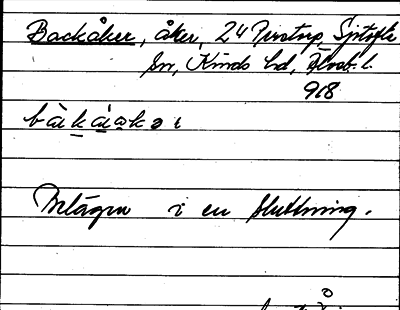 Backåker, åker, 24 Pinstorp, Sjötofta
sn, Kinds hd, Älvsb. l.
918
bàkàakəı
Belägen i en sluttning.